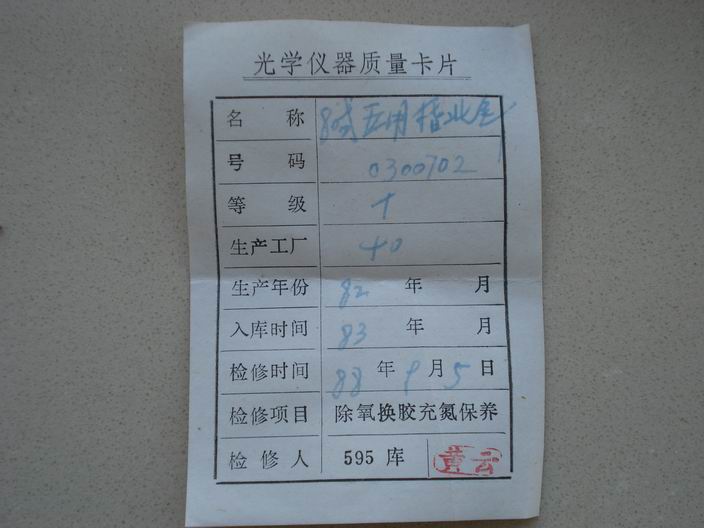 光学仪器质量卡片
名称 80式五用指北针
号码 0300702
等级 +
生产工厂 40
生产年份 82年 月
入库时间 83年 月
检修时间 88年9月5日
检修项目 除氧换胶充氮保养
检修人 595库 黄云